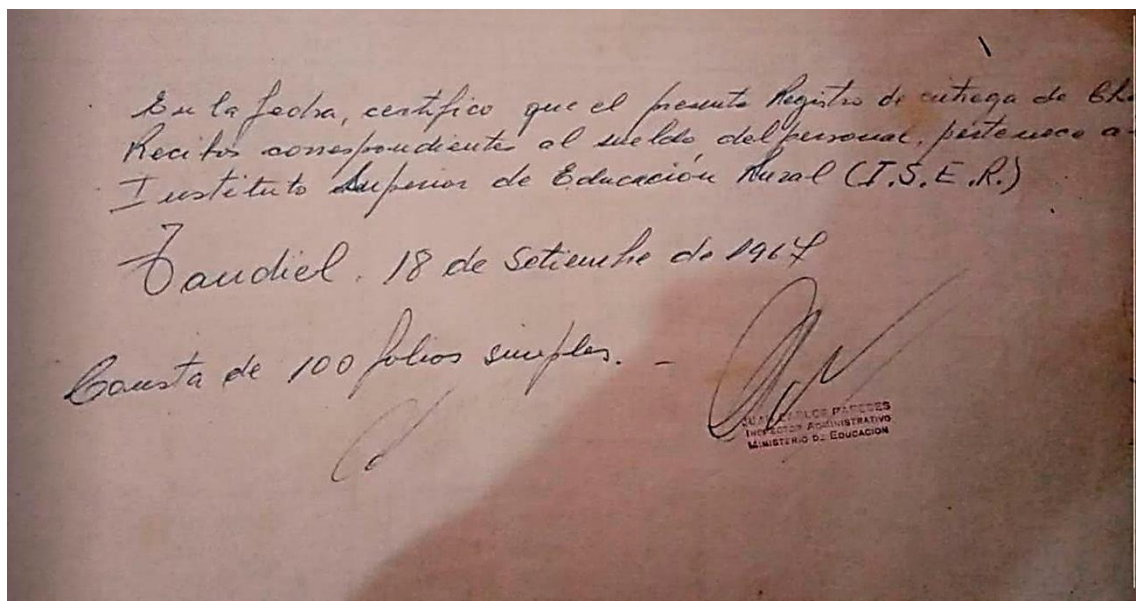 En la fecha, certifico que el presente Registro de entrega de Che
Recibos correspondientes al sueldo del personal, pertenece a-
Instituto Superior de Educación Rural (I.S.E.R.)
Taudiel. 18 de Setiembre de 1967
Consta de 100 folios simples. -
JUAN CARLOS PAREDES
INSPECTOR ADMINISTRATIVO
MINISTERIO DE EDUCACION